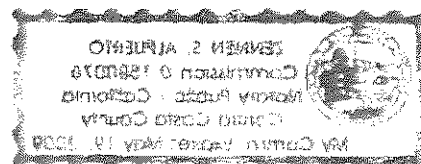 S. ALPUERTO
Commission
Notary Public - California
Contra Costa County
My Comm. Expires May 19,